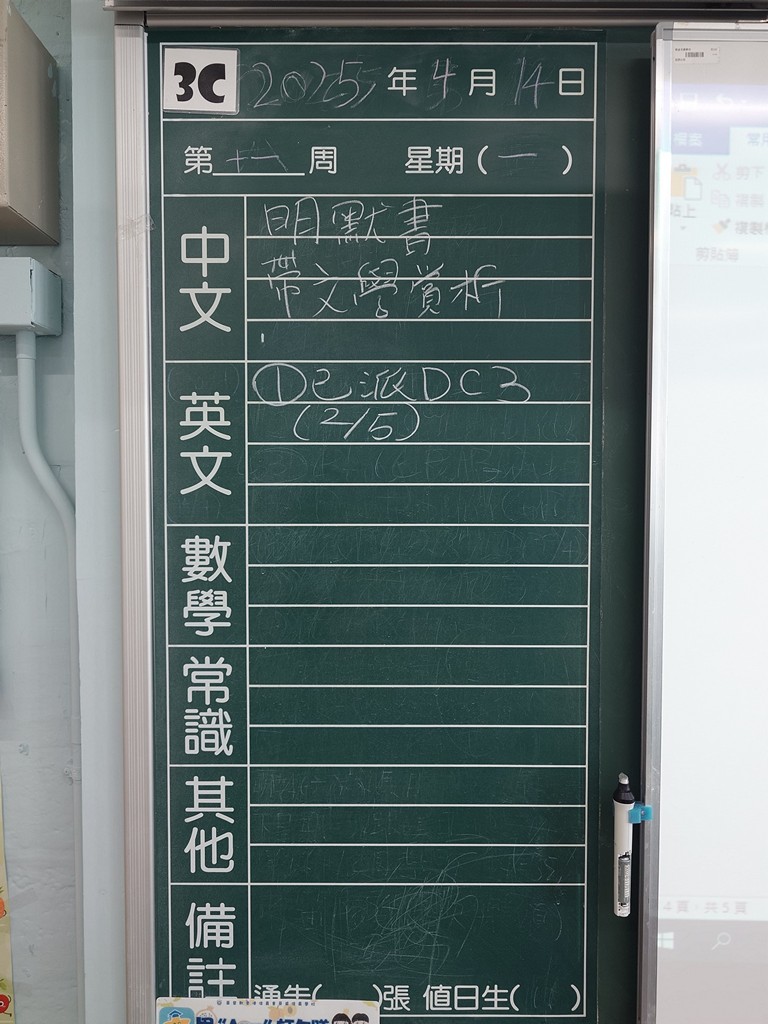 3C 2025年4月14日
第十一周 星期(一)
中文
明默書
帶文學賞析
英文
①已派DC3
(2/5)
數學
常識
其他
備註
通告( )張 值日生( )
剪下
剪貼簿
4頁，共5頁